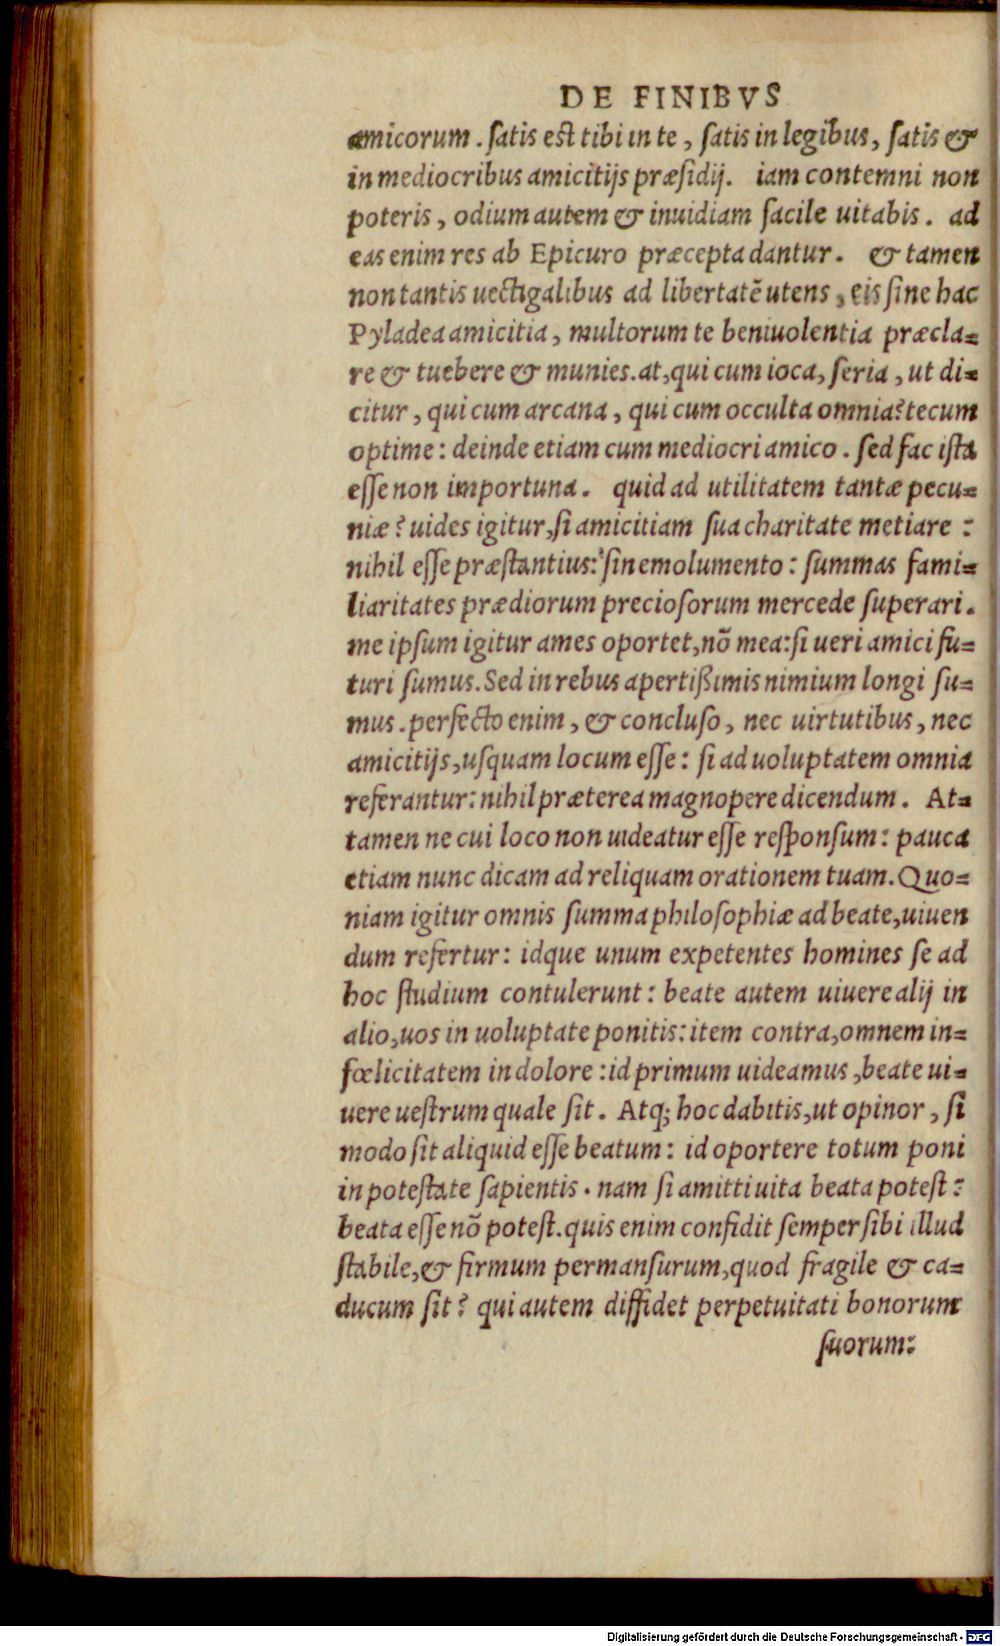 DE FINIBVS
amicorum. ſatis est tibi in te, ſatis in legibus, ſatis &
in mediocribus amicitijs præſidij. iam contemni non
poteris, odium autem & inuidiam facile uitabis. ad
eas enim res ab Epicuro præcepta dantur. & tamen
non tantis uectigalibus ad libertatē utens, eis ſine hac
Pyladea amicitia, multorum te beniuolentia præcla=
re & tuebere & munies. at, qui cum ioca, ſeria, ut di=
citur, qui cum arcana, qui cum occulta omnia? tecum
optime: deinde etiam cum mediocri amico. ſed fac iſta
eſſe non importuna. quid ad utilitatem tantæ pecu=
niæ? uides igitur, ſi amicitiam ſua charitate metiare:
nihil eſſe præſtantius: ſin emolumento: ſummas fami=
liaritates prædiorum precioſorum mercede ſuperari.
me ipſum igitur ames oportet, nō mea: ſi ueri amici fu=
turi ſumus. Sed in rebus apertißimis nimium longi ſu=
mus. perfecto enim, & concluſo, nec uirtutibus, nec
amicitijs, uſquam locum eſſe: ſi ad uoluptatem omnia
referantur: nihil præterea magnopere dicendum. At=
tamen ne cui loco non uideatur eſſe reſponſum: pauca
etiam nunc dicam ad reliquam orationem tuam. Quo=
niam igitur omnis ſumma philoſophiæ ad beate, uiuen
dum refertur: idque unum expetentes homines ſe ad
hoc ſtudium contulerunt: beate autem uiuere alij in
alio, uos in uoluptate ponitis: item contra, omnem in=
fœlicitatem in dolore: id primum uideamus, beate ui=
uere ueſtrum quale ſit. Atq; hoc dabitis, ut opinor, ſi
modo ſit aliquid eſſe beatum: id oportere totum poni
in poteſtate ſapientis. nam ſi amitti uita beata poteſt:
beata eſſe nō poteſt. quis enim confidit ſemper ſibi illud
ſtabile, & firmum permanſurum, quod fragile & ca=
ducum ſit? qui autem diffidet perpetuitati bonorum
ſuorum:
Digitalisierung gefördert durch die Deutsche Forschungsgemeinschaft - DFG